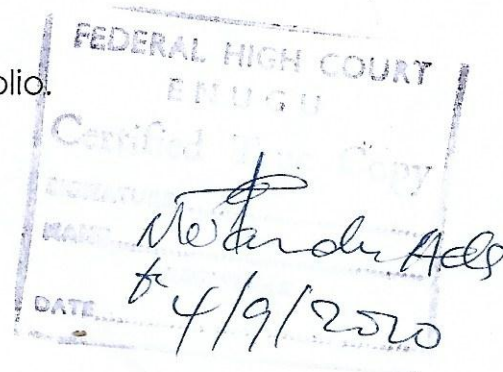 olio.
FEDERAL HIGH COURT
ENUGU
Certified True Copy
SIGNATURE
NAME
DATE 4/9/2020